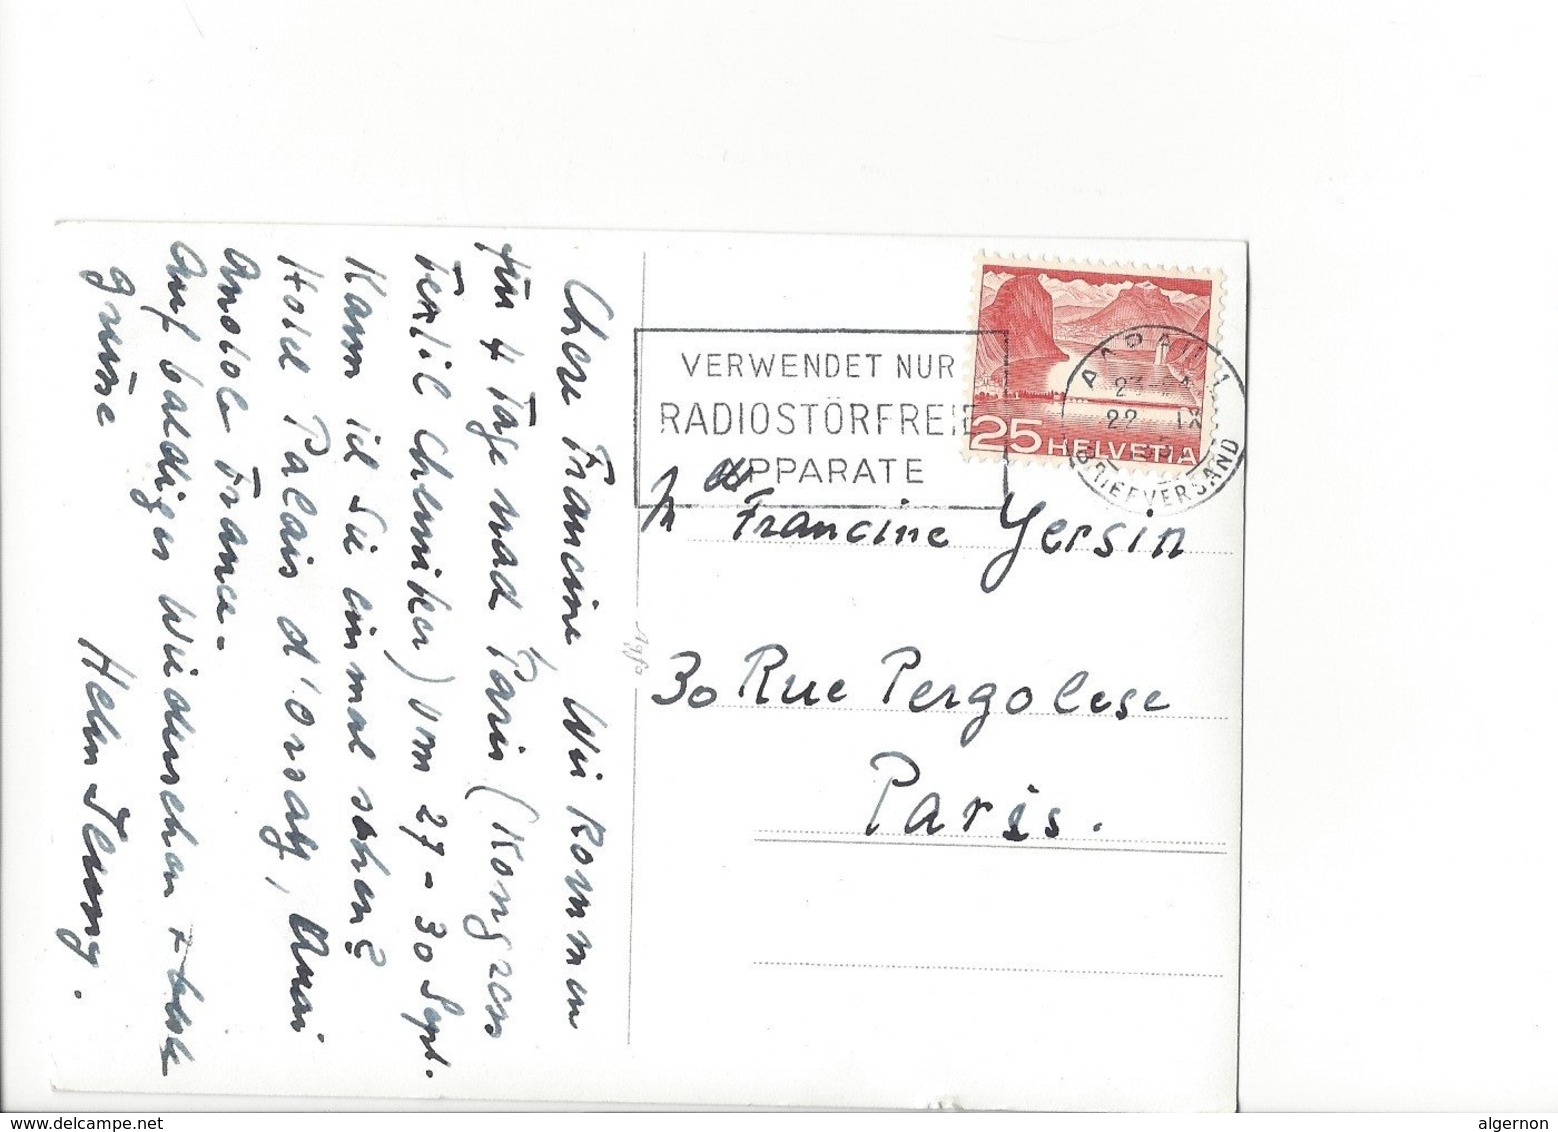 Chere Francine, Wir kommen
für 4 Tage nach Paris (Kongress
Textil Chemiker) vom 27-30 Sept.
Kann ich Sie einmal sehen?
Hotel Palais d'Orsay, Quai
Anatole France.
Auf baldiges Wiedersehen +
grüsse
Helen
Agfa
VERWENDET NUR
RADIOSTÖRFREIE
APPARATE
25 HELVETIA
AARAU 1
22 IX
BRIEFVERSAND
Francine Yersin
30 Rue Pergolese
Paris.
www.delcampe.net
algernon